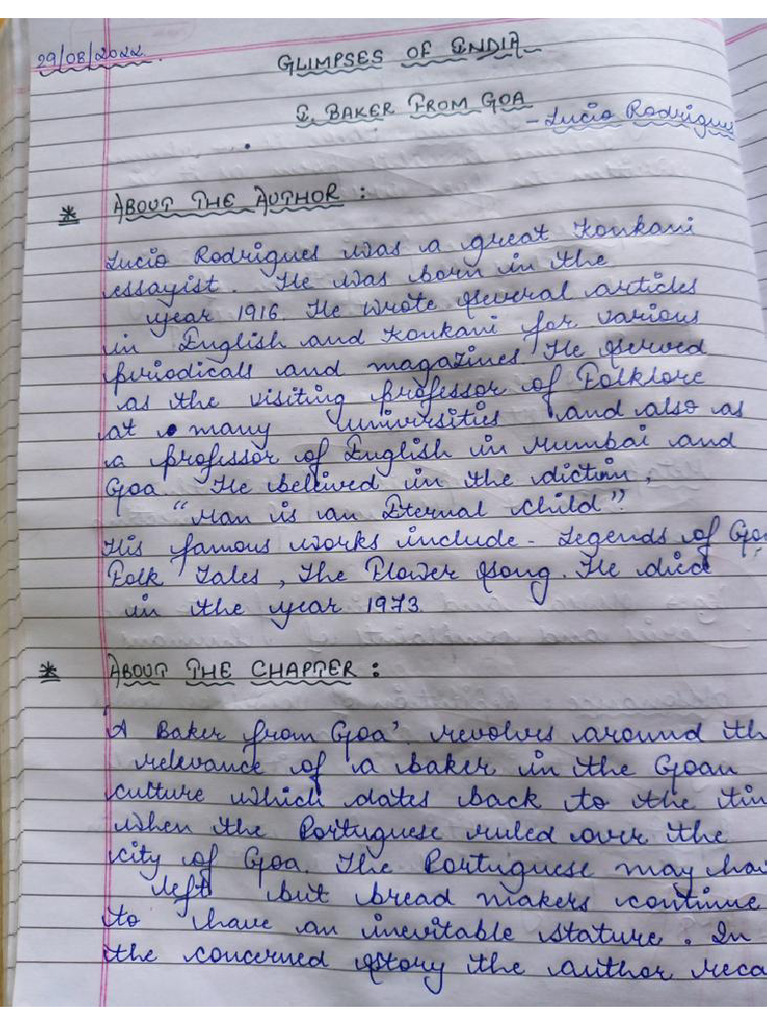 29/08/2022
GLIMPSES OF INDIA
I. BAKER FROM GOA
- Lucio Rodrigues
* ABOUT THE AUTHOR :
Lucio Rodrigues was a great Konkani
essayist. He was born in the
year 1916. He wrote several articles
in English and Konkani for various
periodicals and magazines. He served
as the visiting professor of Folklore
at many universities and also as
a professor of English in Mumbai and
Goa. He believed in the diction,
"Man is an Eternal Child".
His famous works include - Legends of Goa
Folk Tales, The Flower Song. He died
in the year 1973
* ABOUT THE CHAPTER :
'A Baker from Goa' revolves around th
relevance of a baker in the Goan
culture which dates back to the tim
when the Portuguese ruled over the
city of Goa. The Portuguese may hav
left but bread makers continue
to have an inevitable stature. In
the concerned story the author reca